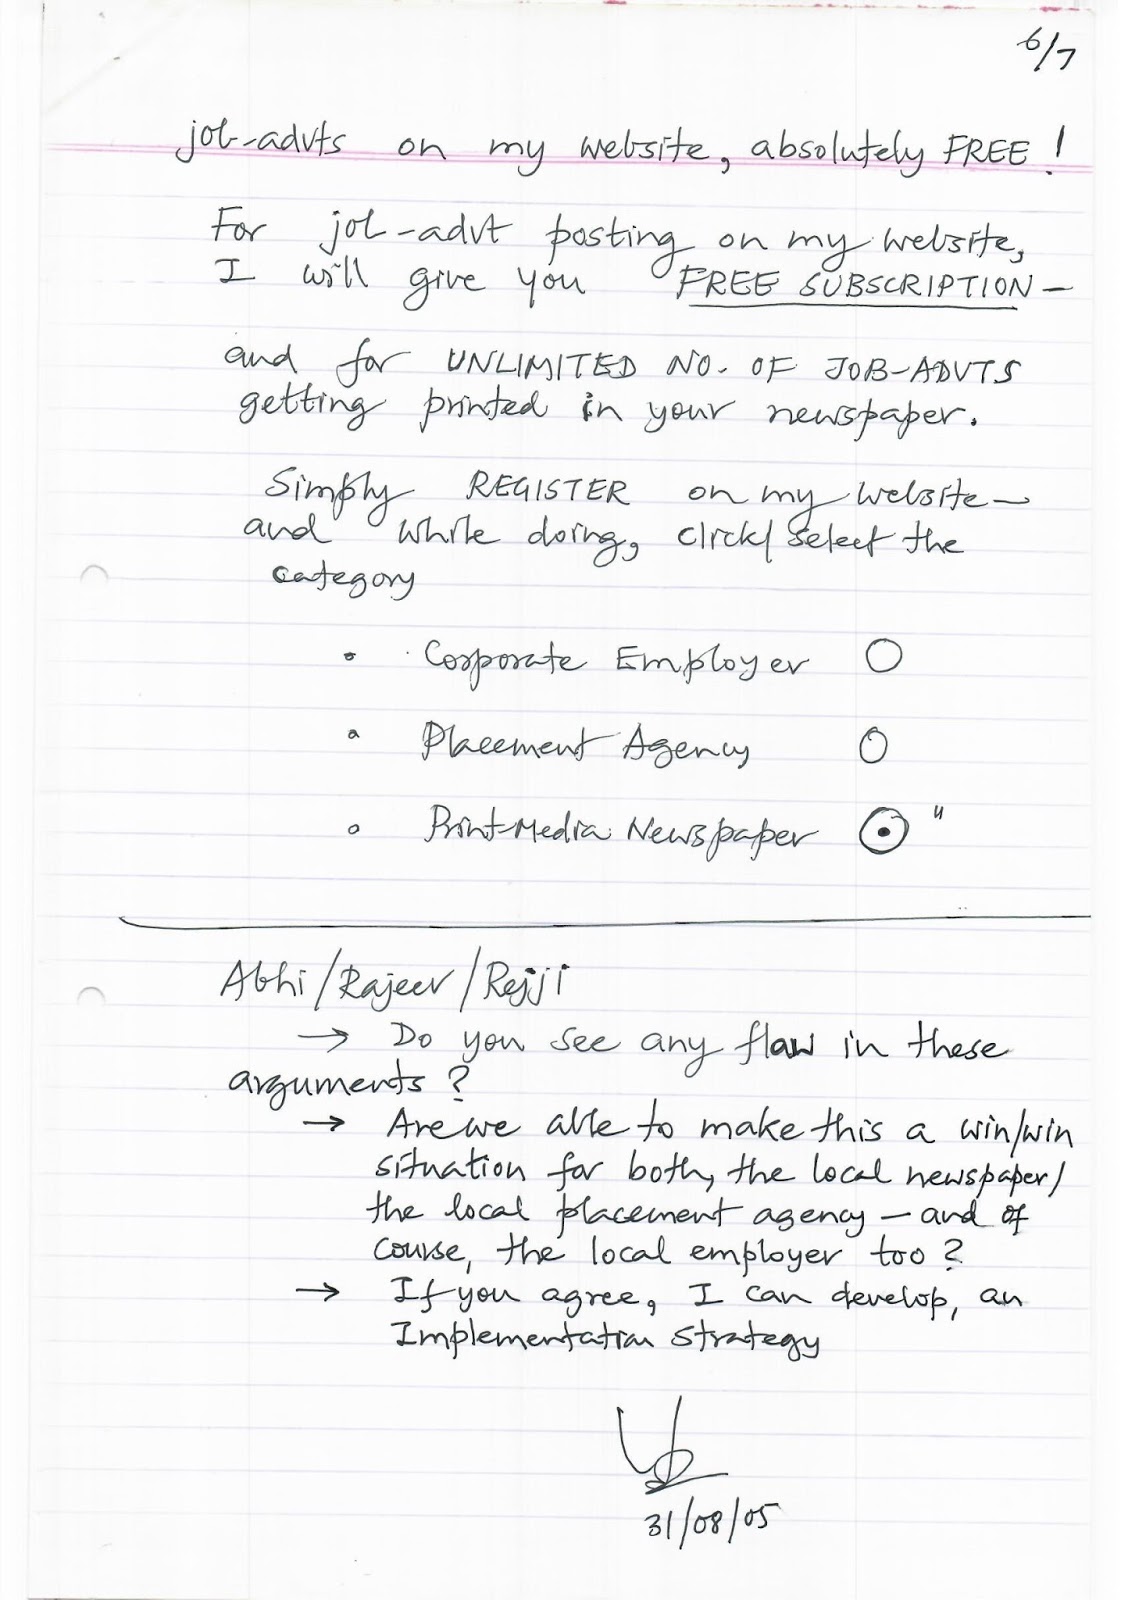 6/7
job-advts on my website, absolutely FREE!
For job-advt posting on my website,
I will give you FREE SUBSCRIPTION -
and for UNLIMITED NO. OF JOB-ADVTS
getting printed in your newspaper.
Simply REGISTER on my website -
and while doing, click/select the
category
• Corporate Employer ○
• Placement Agency ○
• Print-Media Newspaper ⦿ "
Abhi/Rajeev/Rejji
→ Do you see any flaw in these
arguments?
→ Are we able to make this a win/win
situation for both, the local newspaper/
the local placement agency - and of
course, the local employer too?
→ If you agree, I can develop, an
Implementation Strategy
31/08/05